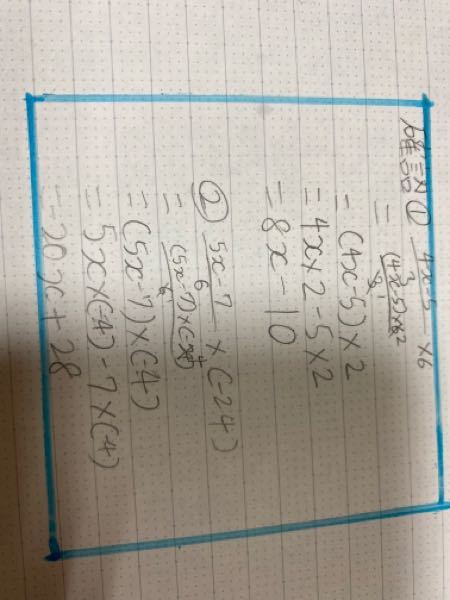 確認① 4x-5/3 ×6
= (4x-5)×6²/3₁
= (4x-5)×2
= 4x×2-5×2
= 8x-10
② 5x-7/6 ×(-24)
= (5x-7)×(-24)/6
= (5x-7)×(-4)
= 5x×(-4)-7×(-4)
= -20x+28